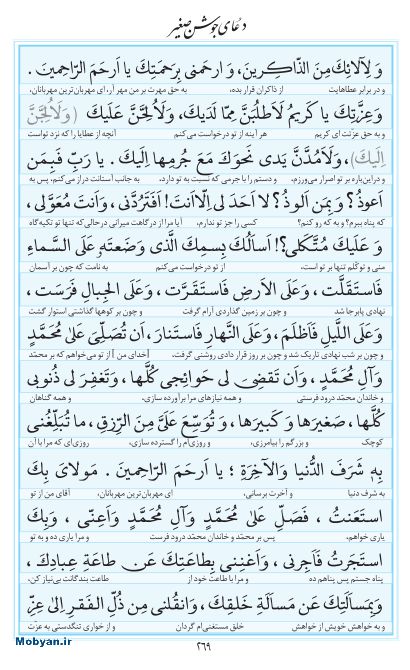 دعای جوشن صغیر
وَ لِآلائِكَ مِنَ الذّاكِرينَ، وَ ارحَمنى بِرَحمَتِكَ يا اَرحَمَ الرّاحِمينَ .
و در برابر عطاهایت از ذاکران قرار بده، به حق مهرت بر من مهر آر، ای مهربان‌ترین مهربانان،
وَعِزَّتِكَ يا كَريمُ لَاَطلُبَنَّ مِمّا لَدَيكَ، وَلَاُلِحَّنَّ عَلَيكَ (وَلَاُلجَّنَّ
و به حق عزّتت ای کریم هر آینه از تو درخواست می‌کنم آنچه از عطایا را که نزد توست
اِلَيكَ)، وَلَاَمُدَّنَّ يَدى نَحوَكَ مَعَ جُرمِها اِلَيكَ . يا رَبِّ فَبِمَن
و دراین‌باره بر تو اصرار می‌ورزم، و دستم را با جرمی که نسبت به تو دارد، به جانب آستانت دراز می‌کنم، پس به
اَعوذُ؟ وَبِمَن اَلوذُ؟ لا اَحَدَ لى اِلّا اَنتَ! اَفَتَرُدُّنى، وَاَنتَ مُعَوَّلى،
که پناه ببرم؟ و به که رو کنم؟ کسی را جز تو ندارم، آیا مرا از درگاهت میرانی درحالی‌که تنها تو تکیه‌گاه
وَ عَلَيكَ مُتَّكَلى؟! اَساَلُكَ بِسمِكَ الَّذى وَضَعتَهو عَلَى السَّماءِ
منی و توکّلم تنها بر تو است، از تو درخواست می‌کنم به نامت که چون بر آسمان
فَاستَقَلَّت، وَعَلَى الاَرضِ فَاستَقَرَّت، وَعَلَى الجِبالِ فَرَسَت،
نهادی پابرجا شد و چون بر زمین گذاردی آرام گرفت و چون بر کوهها گذاشتی استوار گشت
وَعَلَى اللَّيلِ فَاَظلَمَ، وَعَلَى النَّهارِ فَاستَنارَ، اَن تُصَلِّىَ عَلىٰ مُحَمَّدٍ
و چون بر شب نهادی تاریک شد و چون بر روز قرار دادی روشنی گرفت، [خدای من] از تو می‌خواهم که بر محمّد
وَآلِ مُحَمَّدٍ، وَاَن تَقضِىَ لى حَوائِجى كُلَّها، وَتَغفِرَ لى ذُنوبى
و خاندان محمّد درود فرستی و همه نیازهای مرا برآورده سازی، و همه گناهان
كُلَّها، صَغيرَها وَ كَبيرَها، وَ تُوَسِّعَ عَلَىَّ مِنَ الرِّزقِ، ما تُبَلِّغُنى
کوچک و بزرگم را بیامرزی، و روزی‌ام را گسترده سازی، روزی‌ای که مرا با آن
بِهٖ شَرَفَ الدُّنيا وَالآخِرَةِ ؛ يا اَرحَمَ الرّاحِمينَ . مَولاىَ بِكَ
به شرف دنیا و آخرت برسانی، ای مهربان‌ترین مهربانان، آقای من از تو
استَعَنتُ ، فَصَلِّ عَلىٰ مُحَمَّدٍ وَآلِ مُحَمَّدٍ وَاَعِنّى ، وَبِكَ
یاری خواهم، پس بر محمّد و خاندان محمّد درود فرست و مرا یاری ده و به تو
استَجَرتُ فَاَجِرنى ، وَاَغنِنى بِطاعَتِكَ عَن طاعَةِ عِبادِكَ ،
پناه جستم پس پناهم ده و مرا با طاعت خود از طاعت بندگانت بی‌نیاز کن،
وَبِمَساَلَتِكَ عَن مَساَلَةِ خَلقِكَ، وَانقُلنى مِن ذُلِّ الفَقرِ اِلىٰ عِزِّ
و به خواهش خویش از خواهش خلق مستغنی‌ام گردان و از خواری تنگدستی به عزت
٢٦٩
Mobyan.ir